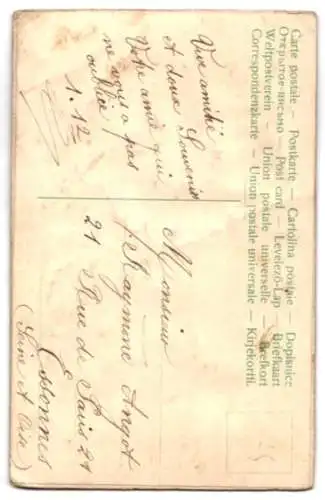 Carte postale — Postkarte — Cartolina postale — Dopisnice
Открытое письмо — Post card — Levelező-Lap — Briefkaart
Weltpostverein — Union postale universelle — Brefkort
Correspondenzkarte — Union postale universale — Kirjekortti.
Vive amitié
et doux Souvenir
Votre amie qui
ne vous a pas
oublié
1.12
Monsieur
Raymond Angot
21 Rue de Paris 21
Essonnes
(Seine et Oise)